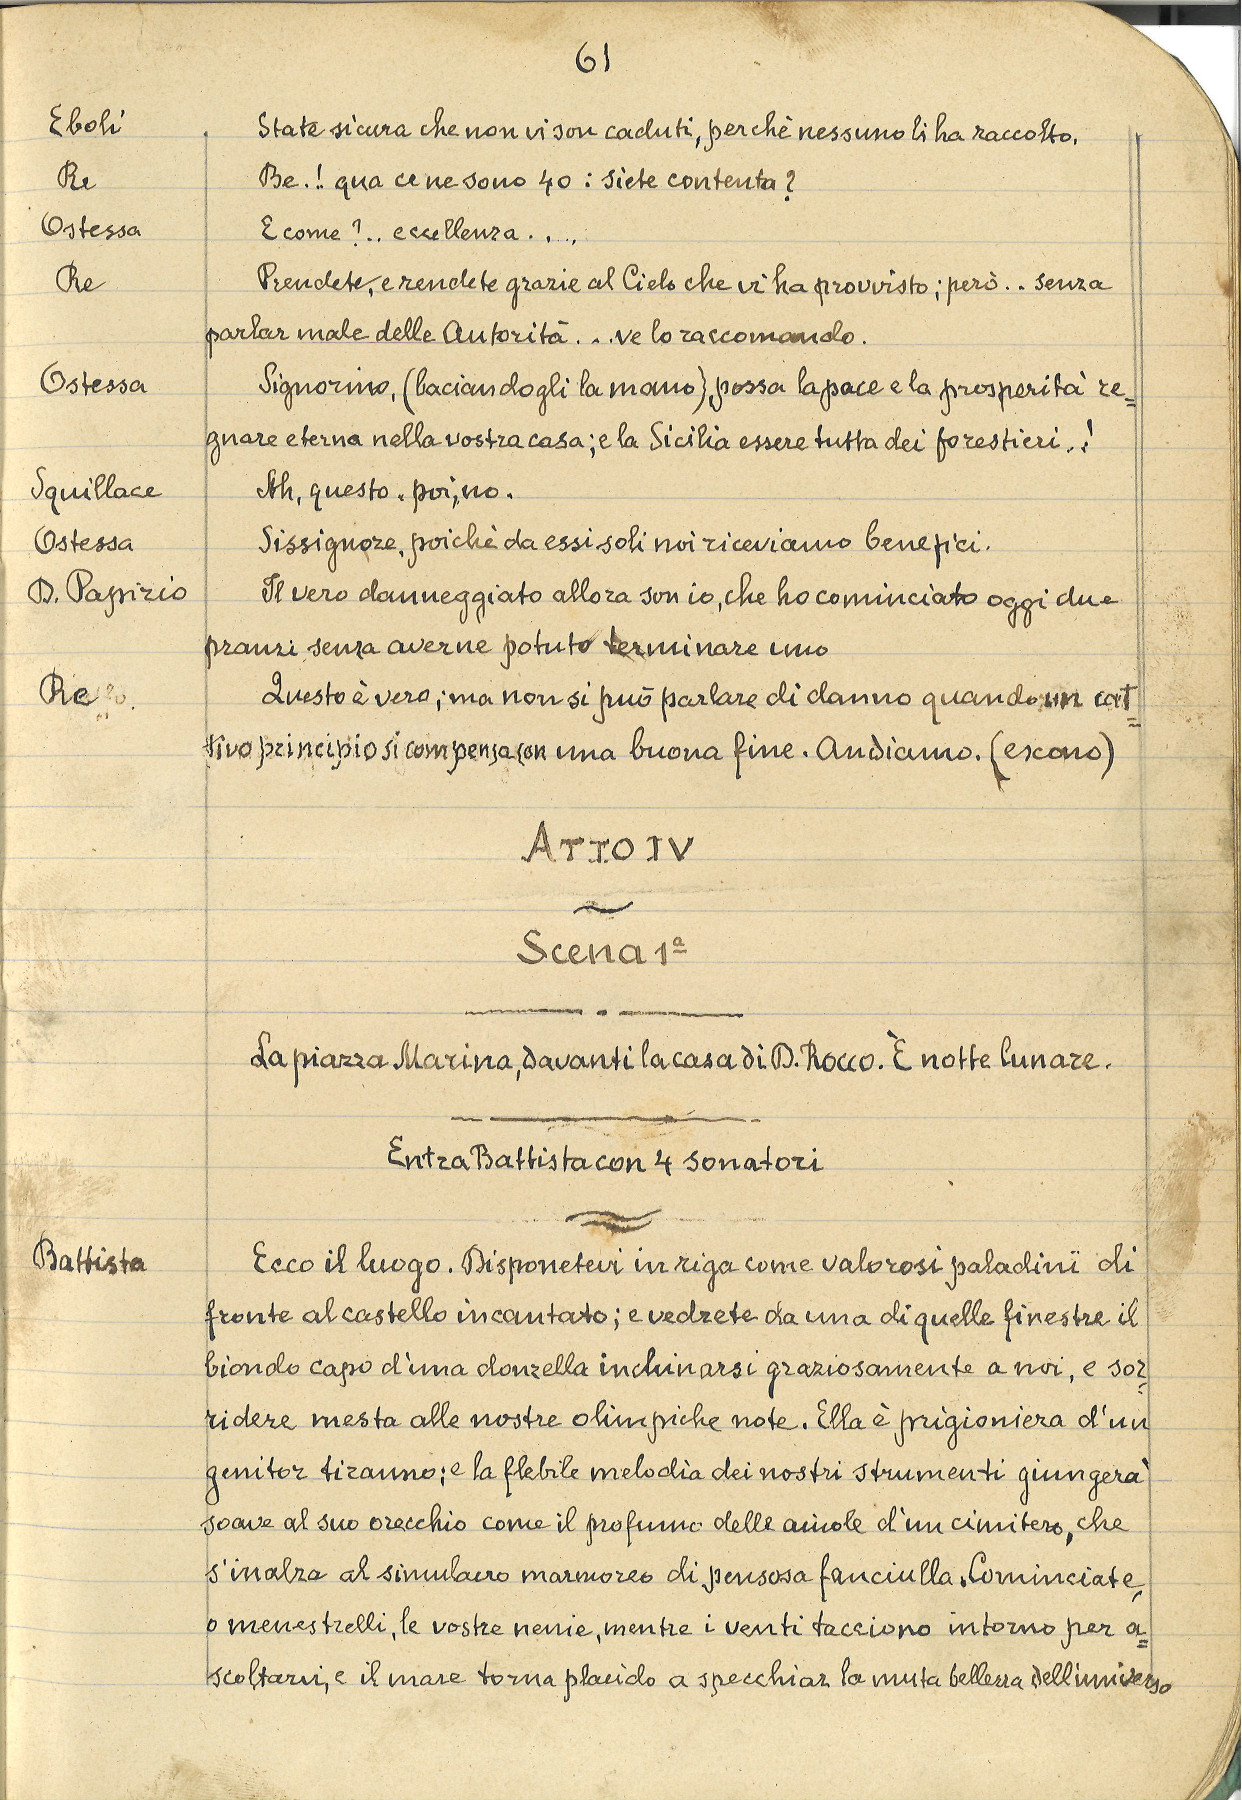 61
Eboli State sicura che non vi son caduti, perchè nessuno li ha raccolto.
Re Be.! qua ce ne sono 40 : siete contenta?
Ostessa E come ?.. eccellenza . . . .
Re Prendete, e rendete grazie al Cielo che vi ha provvisto; però . . senza
parlar male delle Autorità . . . ve lo raccomando.
Ostessa Signorino, (baciandogli la mano), possa la pace e la prosperità re=
gnare eterna nella vostra casa; e la Sicilia essere tutta dei forestieri . !
Squillace Ah, questo . poi, no.
Ostessa Sissignore, poichè da essi soli noi riceviamo benefici.
D. Papirio Il vero danneggiato allora son io, che ho cominciato oggi due
pranzi senza averne potuto terminare uno
Re Questo è vero; ma non si può parlare di danno quando un cat=
tivo principio si compensa con una buona fine. Andiamo. (escono)
ATTO IV
Scena 1ª
La piazza Marina, davanti la casa di D. Rocco. È notte lunare.
Entra Battista con 4 sonatori
Battista Ecco il luogo. Disponetevi in riga come valorosi paladini di
fronte al castello incantato; e vedrete da una di quelle finestre il
biondo capo d'una donzella inchinarsi graziosamente a noi, e sor=
ridere mesta alle nostre olimpiche note. Ella è prigioniera d'un
genitor tiranno; e la flebile melodia dei nostri strumenti giungerà
soave al suo orecchio come il profumo delle aiuole d'un cimitero, che
s'inalza al simulacro marmoreo di pensosa fanciulla. Cominciate,
o menestrelli, le vostre nenie, mentre i venti tacciono intorno per a=
scoltarvi, e il mare torna placido a specchiar la muta bellezza dell'universo